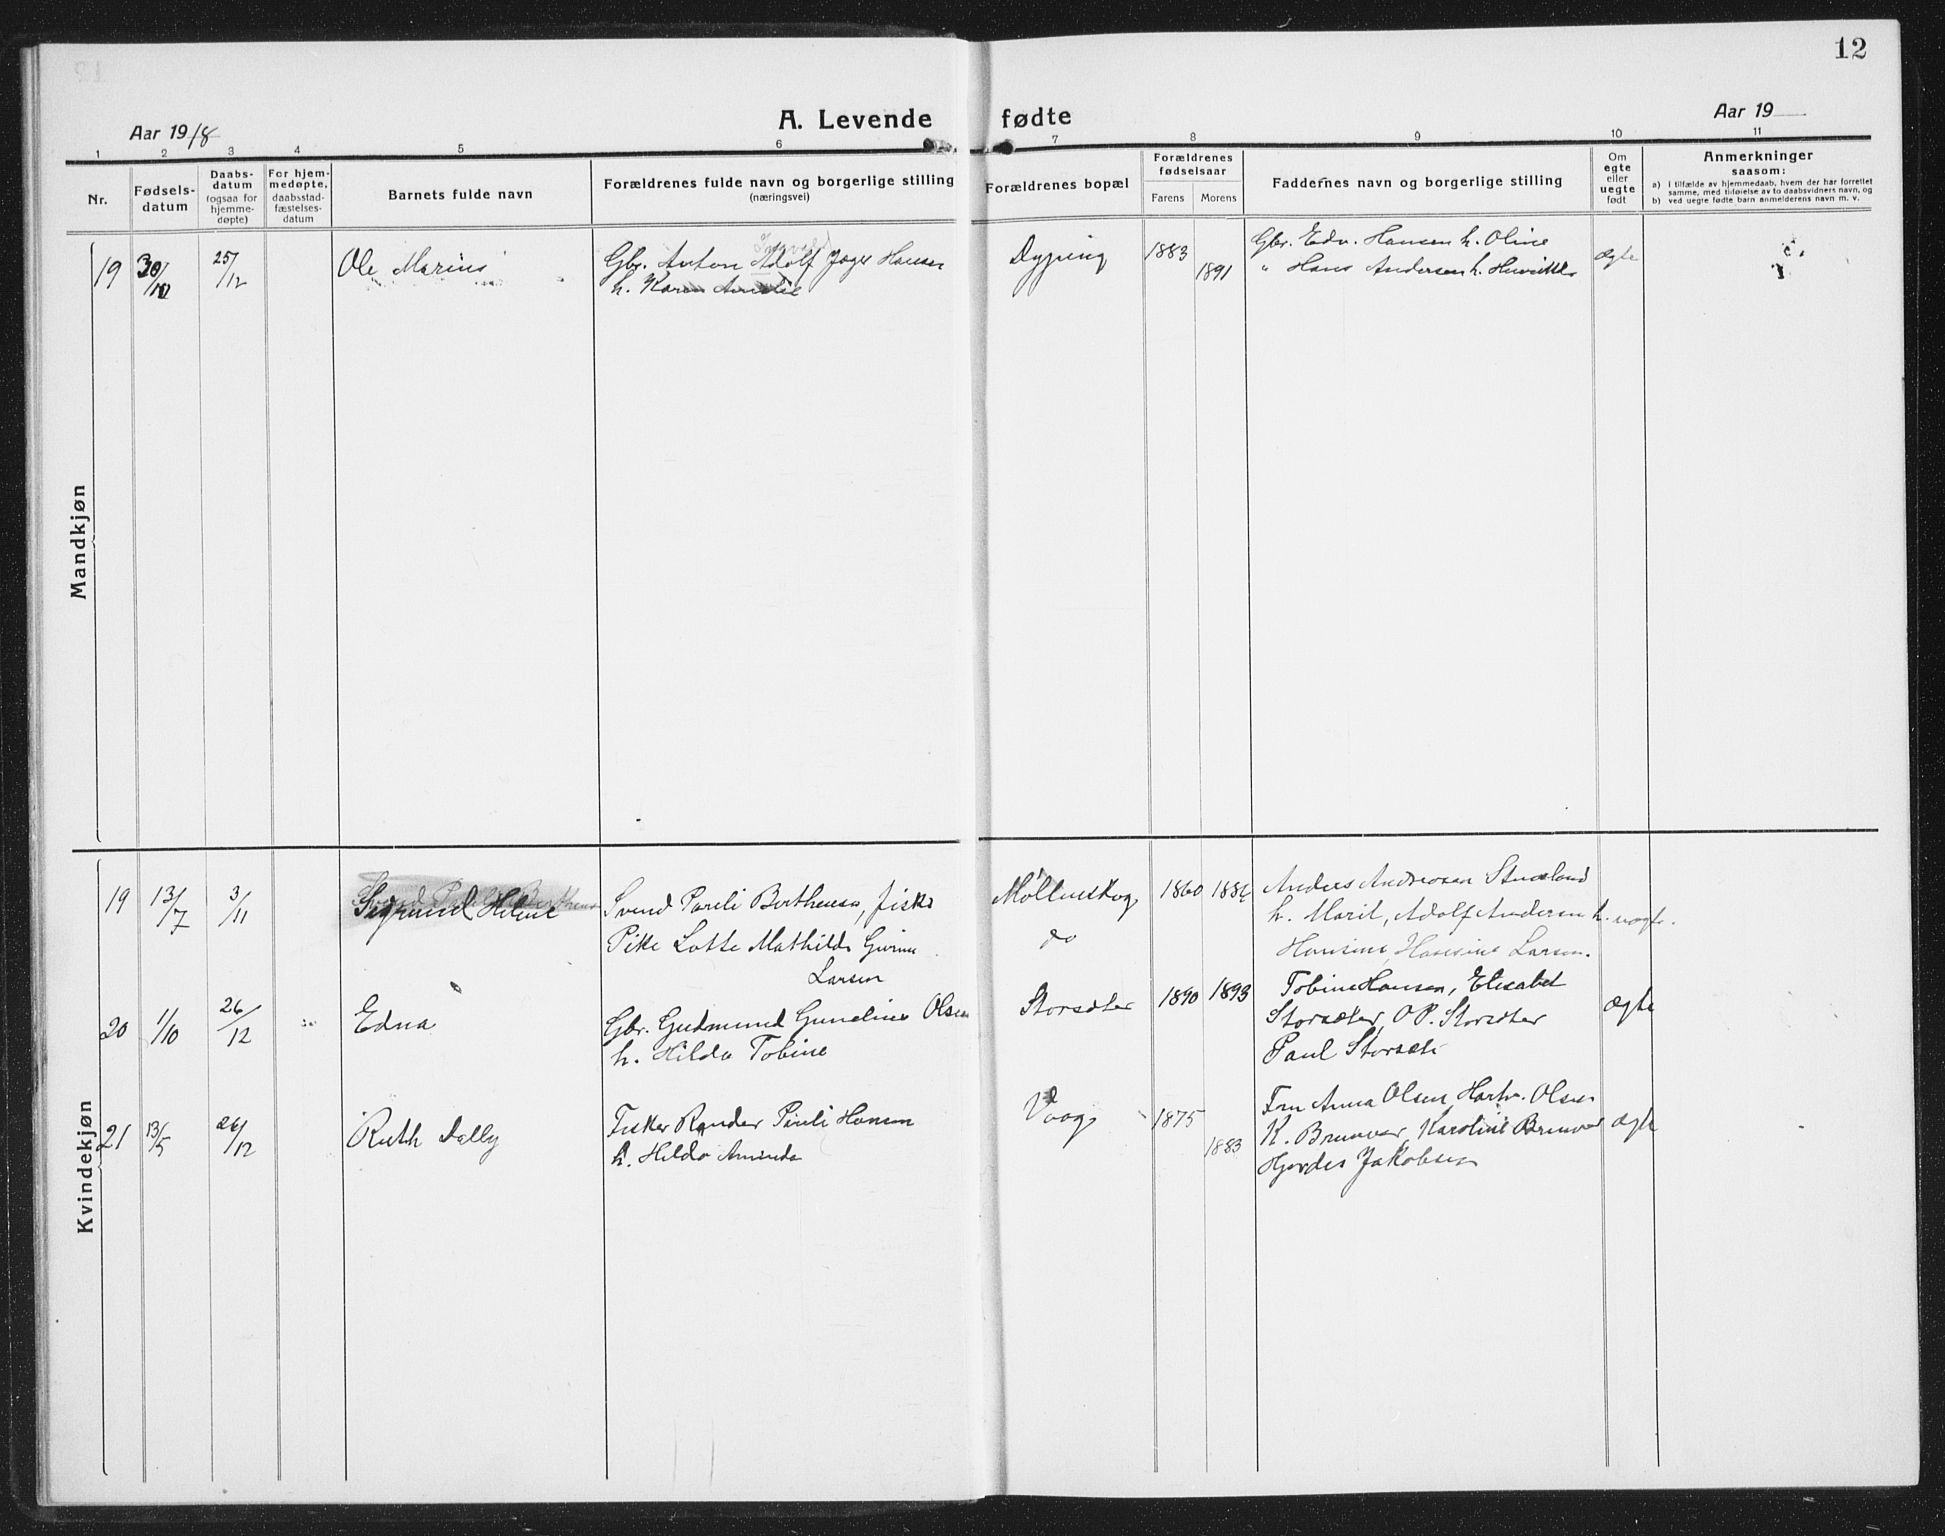 12
Aar 1918
A. Levende fødte
Aar 19
1 2 3 4 5 6 7 8 9 10 11
Nr.
Fødsels-
datum
Daabs-
datum
(ogsaa for
hjemme-
døpte)
For hjem-
medøpte,
daabsstad-
fæstelses-
datum
Barnets fulde navn
Forældrenes fulde navn og borgerlige stilling
(næringsvei)
Forældrenes bopæl
Forældrenes
fødselsaar
Farens Morens
Faddernes navn og borgerlige stilling
Om
egte
eller
uegte
født
Anmerkninger
saasom:
a) I tilfælde av hjemmedaab, hvem der har forrettet
samme, med tilføielse av to daabsvidners navn, og
b) ved uegte fødte barn anmelderens navn m. v.
Mandkjøn
19 30/10 25/12 Ole Marius Gbr. Anton Adolf Hansen 1883 Gbr. Edv. Hansen h. Oline ægte
h. Karen Amalie 1891 " Hans Andersen h.
Kvindekjøn
19 13/7 3/11 Helene Svend Berthensen, 1860 Anders Andreasen
Pike Lotte Mathilde do h. Marit, Adolf Andersen h.
Larsen Hansine, Larsen.
20 11/10 26/12 Edna Gbr. Gudmund Olsen Storsæter 1890 1893 Tobine Hansen, Elisabet ægte
h. Hilda Tobine Storsæter, O P. Storsæter
Paul
21 13/5 26/12 Ruth Dolly Fisker Hansen Vaag 1875 Anna Olsen, Hartv. Olsen ægte
h. Hilda 1883 K. Brunvær, Karoline Brunvær
Hjørdis Jakobsen